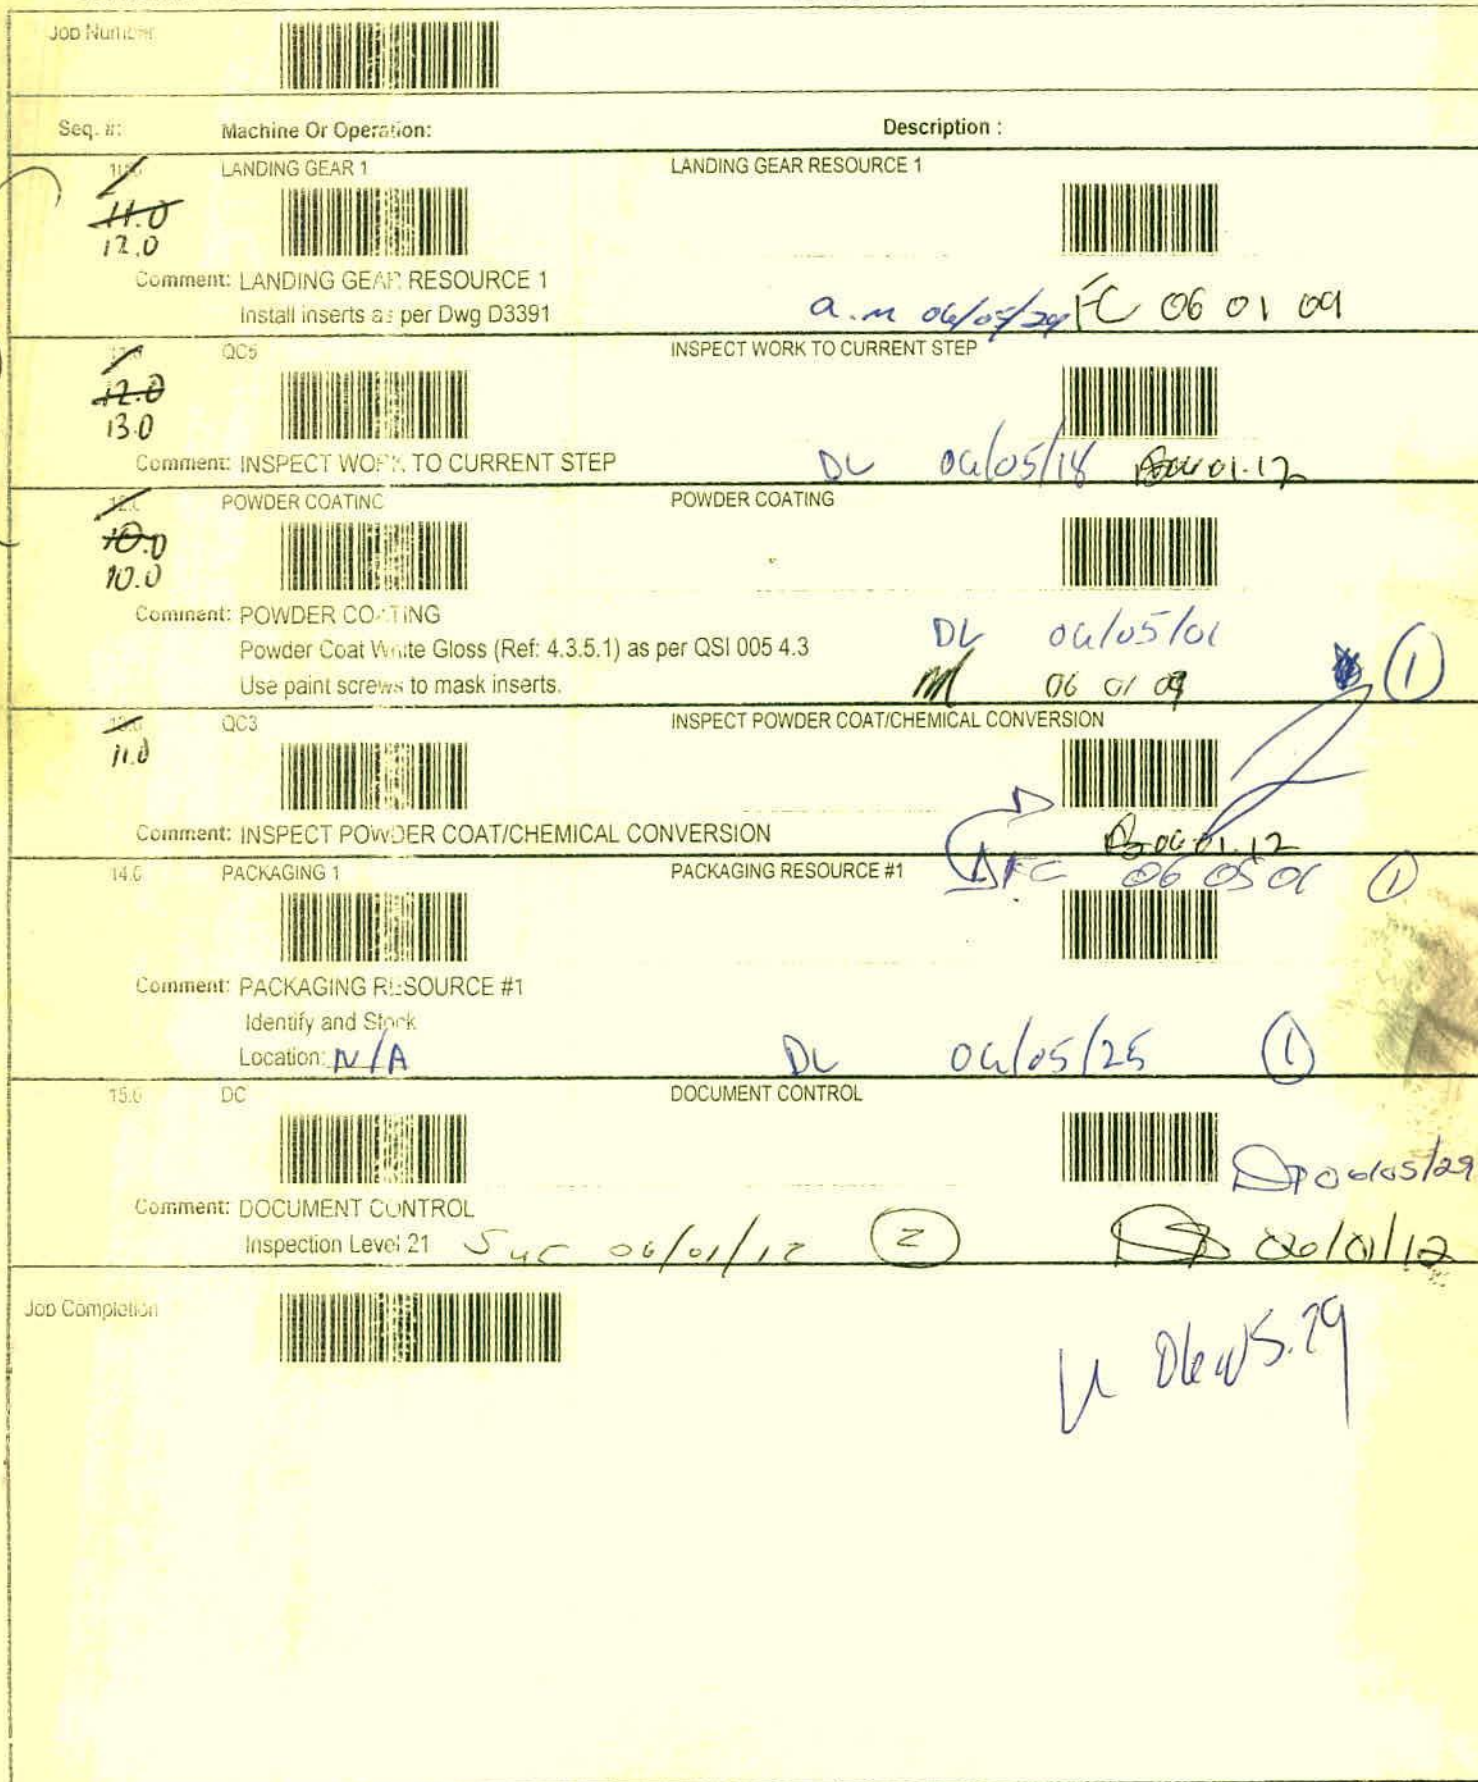 Job Number
Seq. #: Machine Or Operation: Description :
LANDING GEAR 1 LANDING GEAR RESOURCE 1
11.0
12.0
Comment: LANDING GEAR RESOURCE 1
Install inserts as per Dwg D3391 a.m 06/05/29 FC 06 01 09
QC5 INSPECT WORK TO CURRENT STEP
12.0
13.0
Comment: INSPECT WORK TO CURRENT STEP DL 06/05/18 06.01.12
POWDER COATING POWDER COATING
10.0
10.0
Comment: POWDER COATING
Powder Coat White Gloss (Ref: 4.3.5.1) as per QSI 005 4.3 DL 06/05/01
Use paint screws to mask inserts. 06 01 09 1
QC3 INSPECT POWDER COAT/CHEMICAL CONVERSION
11.0
Comment: INSPECT POWDER COAT/CHEMICAL CONVERSION 06.01.12
14.0 PACKAGING 1 PACKAGING RESOURCE #1 FC 06 05 01 1
Comment: PACKAGING RESOURCE #1
Identify and Stock
Location: N/A DL 06/05/25 1
15.0 DC DOCUMENT CONTROL
06/05/29
Comment: DOCUMENT CONTROL
Inspection Level 21 06/01/12 2 06/01/12
Job Completion